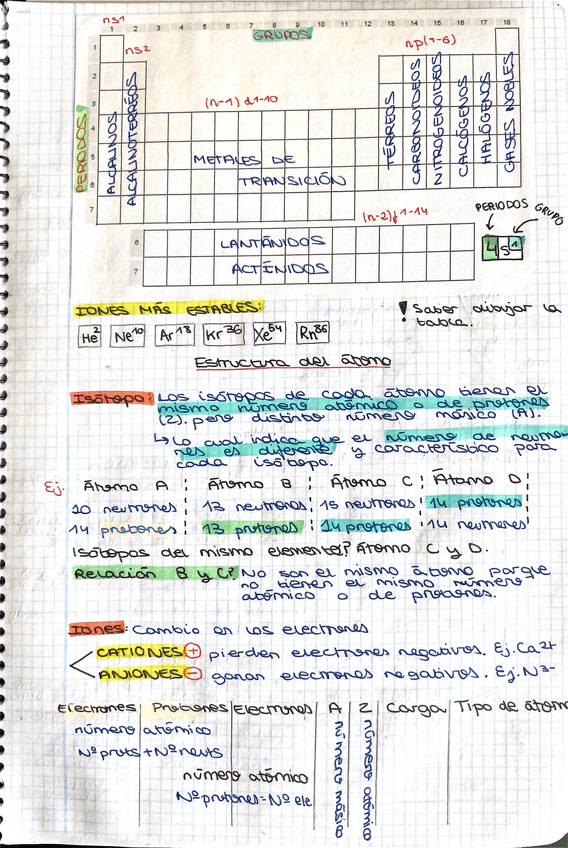 ns1
1 2 3 4 5 6 7 8 9 10 11 12 13 14 15 16 17 18
GRUPOS
ns2
np(1-6)
1
2
3
4
5
6
7
PERIODOS
ALCALINOS
ALCALINOTÉRREOS
(n-1) d1-10
METALES DE
TRANSICIÓN
TÉRREOS
CARBONOIDEOS
NITROGENOIDEOS
CALCÓGENOS
HALÓGENOS
GASES NOBLES
(n-2)f1-14
6 LANTÁNIDOS
7 ACTÍNIDOS
PERIODOS GRUPO
4s1
IONES MÁS ESTABLES:
! Saber dibujar la
tabla.
He2 Ne10 Ar18 Kr36 Xe54 Rn86
Estructura del átomo
Isótopo: Los isótopos de cada átomo tienen el
mismo número atómico o de protones
(Z). pero distinto número másico (A).
↳ Lo cual indica que el número de neutro
nes es diferente y característico para
cada isótopo.
Ej: Átomo A Átomo B Átomo C Átomo D
10 neutrones 13 neutrones 15 neutrones 14 protones
14 protones 13 protones 14 protones 14 neutrones
Isótopos del mismo elemento? Átomo C y D.
Relación B y C? No son el mismo átomo porque
no tienen el mismo número
atómico o de protones.
Iones: Cambio en los electrones
CATIONES + pierden electrones negativos. Ej. Ca2+
ANIONES - ganan electrones negativos. Ej. N3-
Electrones Protones Electrones A Z Carga Tipo de átomo
número atómico
Nº prots + Nº neuts
número atómico
Nº protones = Nº ele
número másico
número atómico